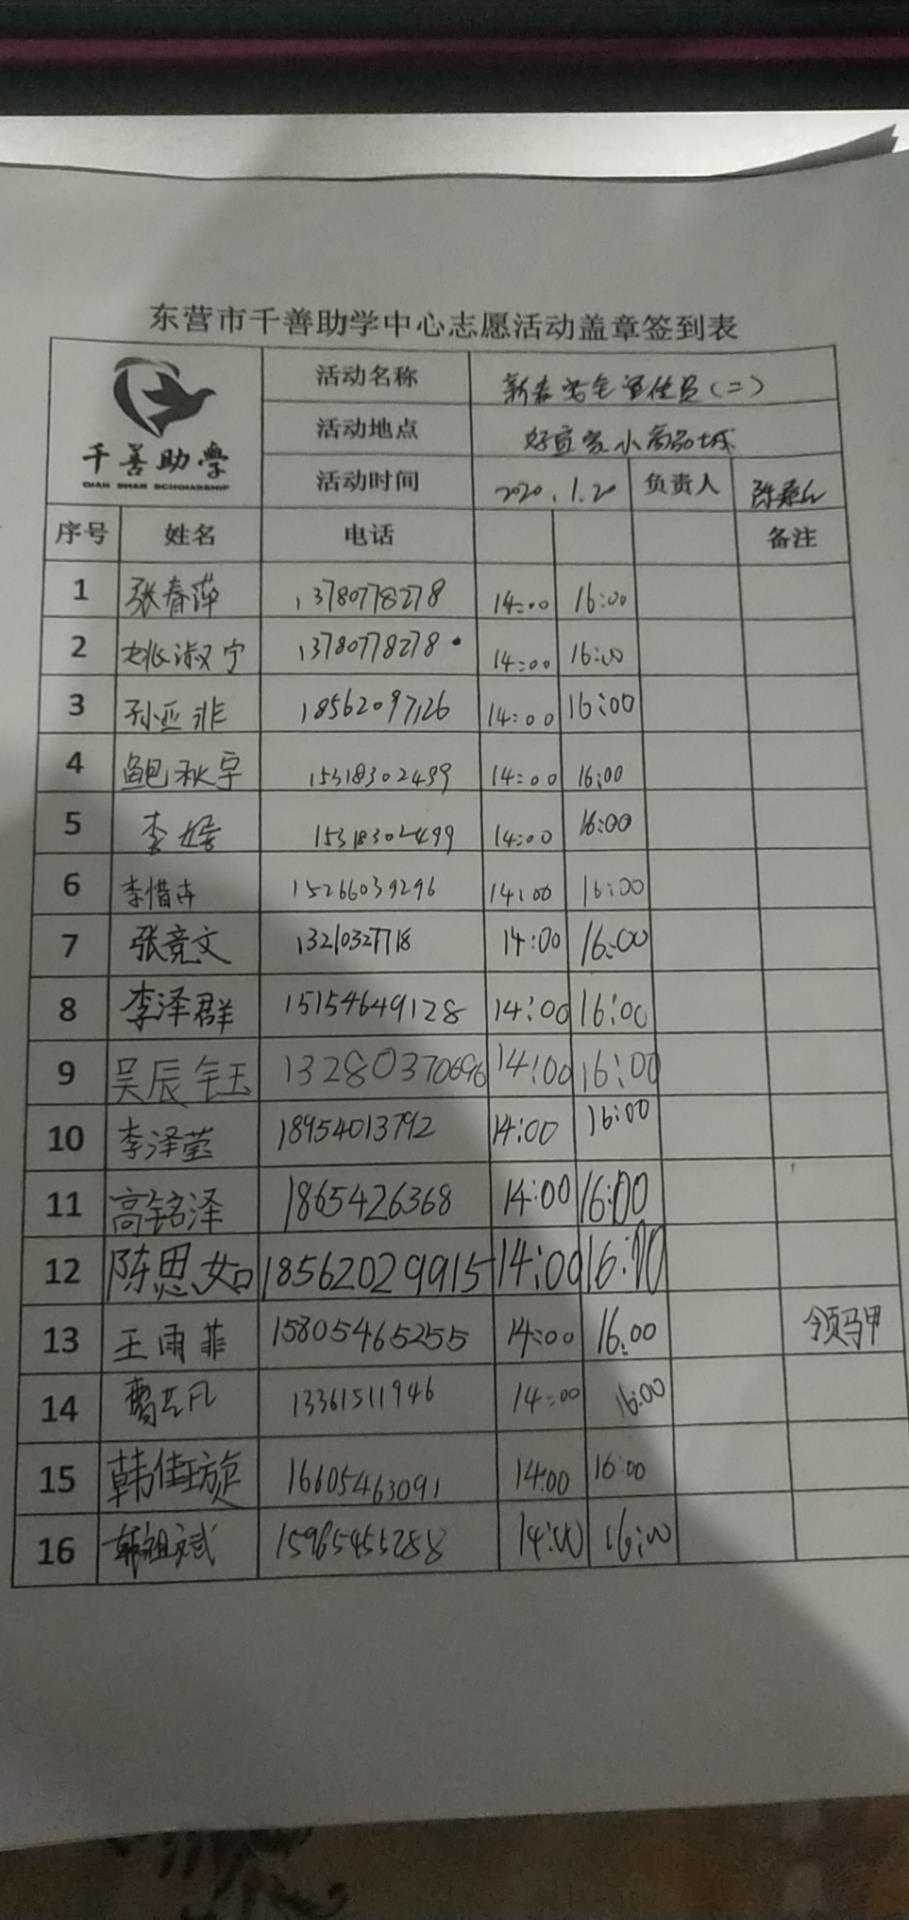 东营市千善助学中心志愿活动盖章签到表
千善助学
QIAN SHAN SCHOLARSHIP
活动名称 新春安全宣传员(二)
活动地点 好宜家小商品城
活动时间 2020.1.20 负责人
序号 姓名 电话 备注
1 张春萍 13780778278 14:00 16:00
2 姚淑宁 13780778278 14:00 16:00
3 孙亚非 18562097126 14:00 16:00
4 鲍秋宇 15318302499 14:00 16:00
5 李 15318302499 14:00 16:00
6 李惜卉 15266039296 14:00 16:00
7 张竞文 13210327718 14:00 16:00
8 李泽群 15154649128 14:00 16:00
9 吴辰钰 13280370696 14:00 16:00
10 李泽莹 18954013792 14:00 16:00
11 高铭泽 1865426368 14:00 16:00
12 陈思如 18562029915 14:00 16:00
13 王雨菲 15805465255 14:00 16:00 领马甲
14 13361511946 14:00 16:00
15 韩佳璇 16605463091 14:00 16:00
16 韩祖斌 15965455288 14:00 16:00